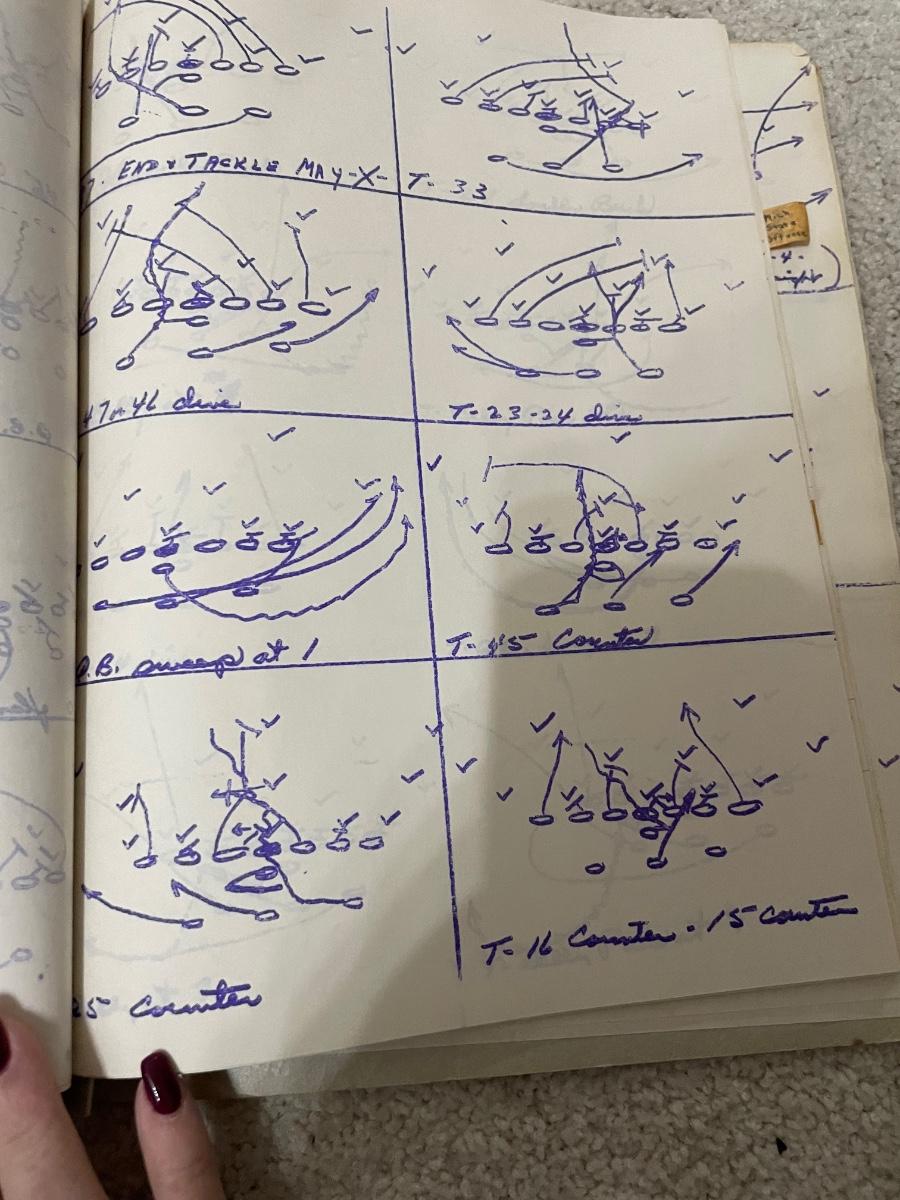 END & TACKLE MAY-X-
T-33
47 or 46 dive
T-23-24 dive
Q.B. sweep at 1
T-45 Counter
25 Counter
T-16 Counter - 15 Counter